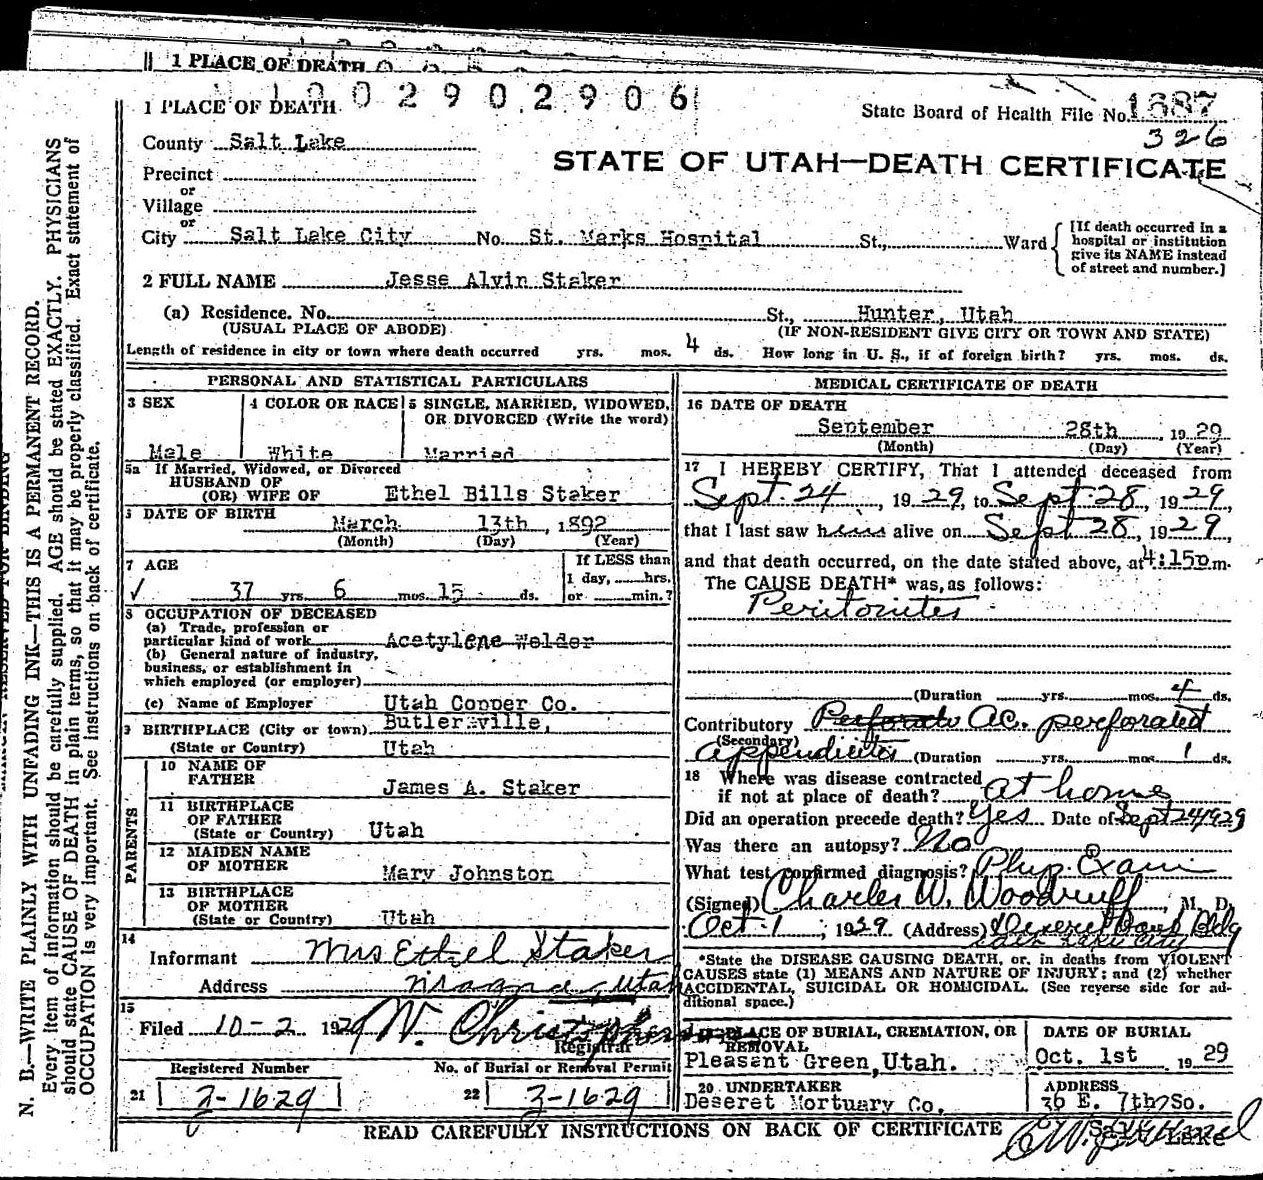 1 PLACE OF DEATH
1002902906
1 PLACE OF DEATH
State Board of Health File No. 1687
326
County Salt Lake
STATE OF UTAH—DEATH CERTIFICATE
Precinct
or
Village
or
City Salt Lake City No. St. Marks Hospital St., Ward
[If death occurred in a
hospital or institution
give its NAME instead
of street and number.]
2 FULL NAME Jesse Alvin Staker
(a) Residence. No. St., Hunter, Utah
(USUAL PLACE OF ABODE) (IF NON-RESIDENT GIVE CITY OR TOWN AND STATE)
Length of residence in city or town where death occurred yrs. mos. 4 ds. How long in U. S., if of foreign birth? yrs. mos. ds.
PERSONAL AND STATISTICAL PARTICULARS
3 SEX
Male
4 COLOR OR RACE
White
5 SINGLE, MARRIED, WIDOWED,
OR DIVORCED (Write the word)
Married
5a If Married, Widowed, or Divorced
HUSBAND OF
(OR) WIFE OF Ethel Bills Staker
DATE OF BIRTH
March 13th, 1892
(Month) (Day) (Year)
7 AGE
If LESS than
1 day, hrs.
or min.?
✓ 37 yrs 6 mos. 15 ds.
8 OCCUPATION OF DECEASED
(a) Trade, profession or
particular kind of work Acetylene Welder
(b) General nature of industry,
business, or establishment in
which employed (or employer)
(c) Name of Employer Utah Copper Co.
9 BIRTHPLACE (City or town) Butlerville,
(State or Country) Utah
PARENTS
10 NAME OF
FATHER James A. Staker
11 BIRTHPLACE
OF FATHER
(State or Country) Utah
12 MAIDEN NAME
OF MOTHER Mary Johnston
13 BIRTHPLACE
OF MOTHER
(State or Country) Utah
14
Informant Mrs Ethel Staker
Address Magna, Utah
15
Filed 10-2 1929 W. Christopherson
Registrar
Registered Number
21 3-1629
No. of Burial or Removal Permit
22 3-1629
MEDICAL CERTIFICATE OF DEATH
16 DATE OF DEATH
September 28th, 1929
(Month) (Day) (Year)
17 I HEREBY CERTIFY, That I attended deceased from
Sept. 24, 1929, to Sept. 28, 1929
that I last saw him alive on Sept 28, 1929,
and that death occurred, on the date stated above, at 4:15p m.
The CAUSE DEATH* was, as follows:
Peritonites
(Duration yrs. mos. 4 ds.
Contributory Perforato Ac. perforated
(Secondary)
appendicites (Duration yrs. mos. 1 ds.
18 Where was disease contracted
if not at place of death? at home
Did an operation precede death? Yes Date of Sept 24 1929
Was there an autopsy? No
What test confirmed diagnosis? Phys. Exam
(Signed) Charles W. Woodruff, M. D.
Oct 1, 1929 (Address) Deseret Bank Bldg
Salt Lake City
*State the DISEASE CAUSING DEATH, or, in deaths from VIOLENT
CAUSES state (1) MEANS AND NATURE OF INJURY; and (2) whether
ACCIDENTAL, SUICIDAL OR HOMICIDAL. (See reverse side for ad-
ditional space.)
PLACE OF BURIAL, CREMATION, OR
REMOVAL
Pleasant Green, Utah.
DATE OF BURIAL
Oct. 1st 1929
20 UNDERTAKER
Deseret Mortuary Co.
ADDRESS
36 E. 7th So.
Salt Lake
READ CAREFULLY INSTRUCTIONS ON BACK OF CERTIFICATE
N. B.—WRITE PLAINLY WITH UNFADING INK—THIS IS A PERMANENT RECORD.
Every item of information should be carefully supplied. AGE should be stated EXACTLY. PHYSICIANS
should state CAUSE OF DEATH in plain terms, so that it may be properly classified. Exact statement of
OCCUPATION is very important. See instructions on back of certificate.